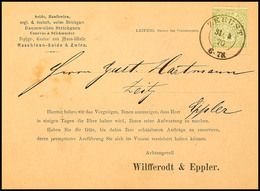 Seide, Baumwolle,
engl. & deutsch. weisse Strickgarn
Baumwollene Strickgarn
Canevas & Stickmuster
Maschinen-Seide & Zwirn.
LEIPZIG, Datum des Poststempels.
ZERBST
Herrn Gust. Hartmann
Eppler
Hiermit haben wir das Vergnügen, Ihnen anzuzeigen, dass Herr
in einigen Tagen die Ehre haben wird, Ihnen seine Aufwartung zu machen.
Haben Sie die Güte, bis dahin Ihre schätzbaren Aufträge zu reserviren,
deren prompter Ausführung Sie sich im Voraus versichert halten können.
Achtungsvoll
Wilfferodt & Eppler.